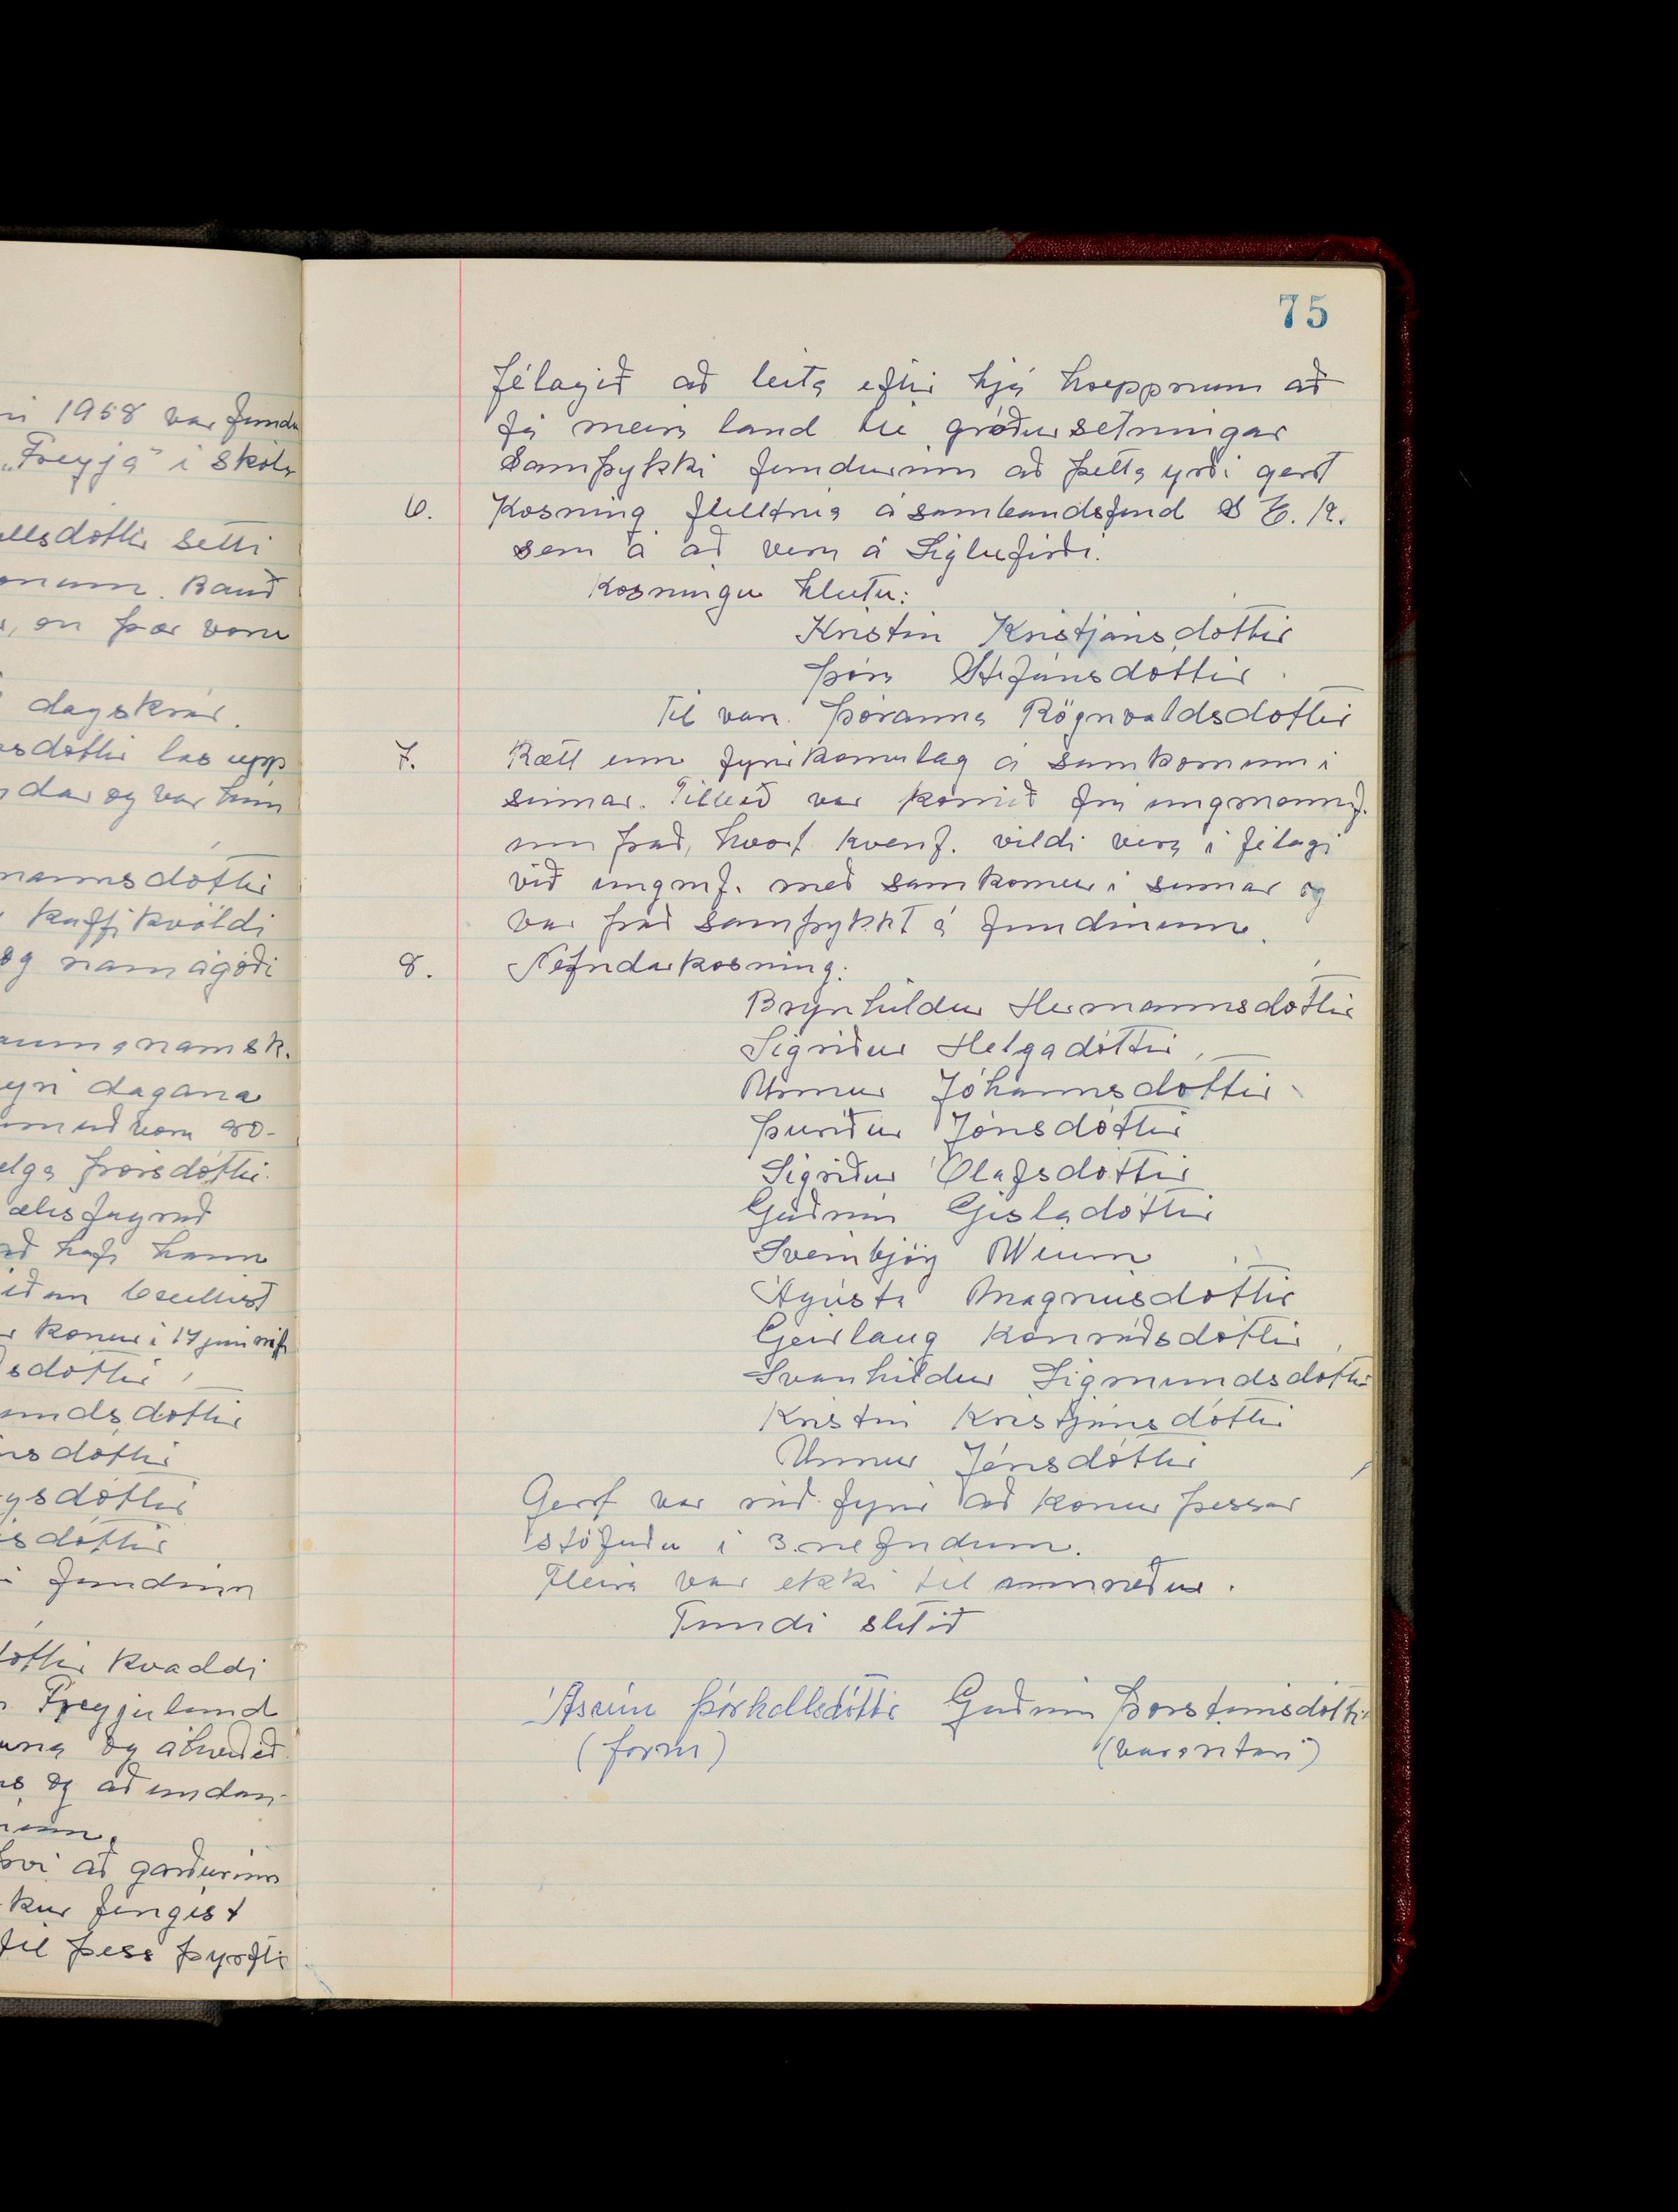 75
félagið að leita eftir hjá hreppnum að
fá meira land til gróðursetningar
Samþykkti fundurinn að þetta yrði gert
6. Kosning fulltrúa á sambandsfund S E. K.
sem á að vera á Siglufirði.
Kosningu hlutu:
Kristín Kristjánsdóttir
Þóra Stefánsdóttir
Til vara Þóranna Rögnvaldsdóttir
7. Rætt um fyrirkomulag á samkomum í
sumar. Tilboð var komið frá ungmennaf.
um það, hvort kvenf. vildi vera í félagi
við ungmf. með samkomur í sumar og
var það samþykkt á fundinum.
8. Nefndarkosning:
Brynhildur Hermannsdóttir
Sigríður Helgadóttir
Unnur Jóhannsdóttir
Þuríður Jónsdóttir
Sigríður Ólafsdóttir
Guðrún Gísladóttir
Sveinbjörg Wium
Ágústa Magnúsdóttir
Geirlaug Konráðsdóttir
Svanhildur Sigmundsdóttir
Kristín Kristjánsdóttir
Unnur Jónsdóttir
Gert var ráð fyrir að konur þessar
störfuðu í 3 nefndum.
Fleira var ekki til umræðu.
Fundi slitið
Ásrún Þórhallsdóttir Guðrún Þorsteinsdóttir
(form) (vararitari)
1958 var fundur
„Freyja" í skóla
dóttir setti
Bauð
en þær voru
dagskrár.
dóttir las upp
og var hún
mannsdóttir
kaffikvöldi
og nam ágóði
namsk.
dagana
90-
Þórisdóttir
hafi hann
konur í 17 júní
sdóttir
undsdóttir
nsdóttir
ysdóttir
sdóttir
fundinn
dóttir kvaddi
Freyjulund
og ákveðið
og að undan-
því að garðurinn
fengist
til þess þyrfti